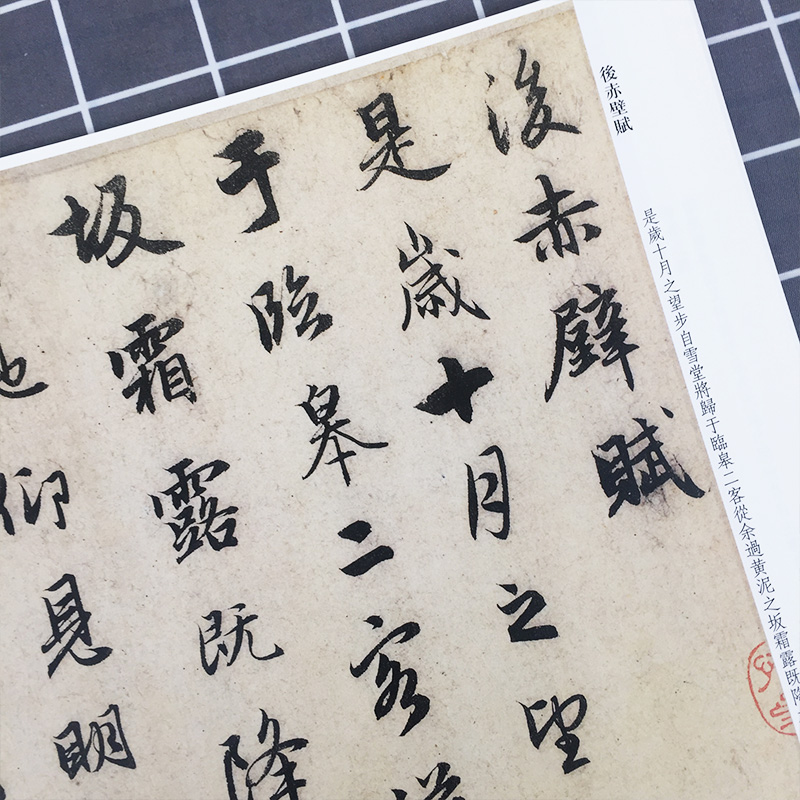 後赤壁賦
是歲十月之望步自雪堂將歸于臨皋二客從余過黄泥之坂霜露既降
後赤壁賦
是歲十月之望
于臨皋二客
坂霜露既降
仰見明